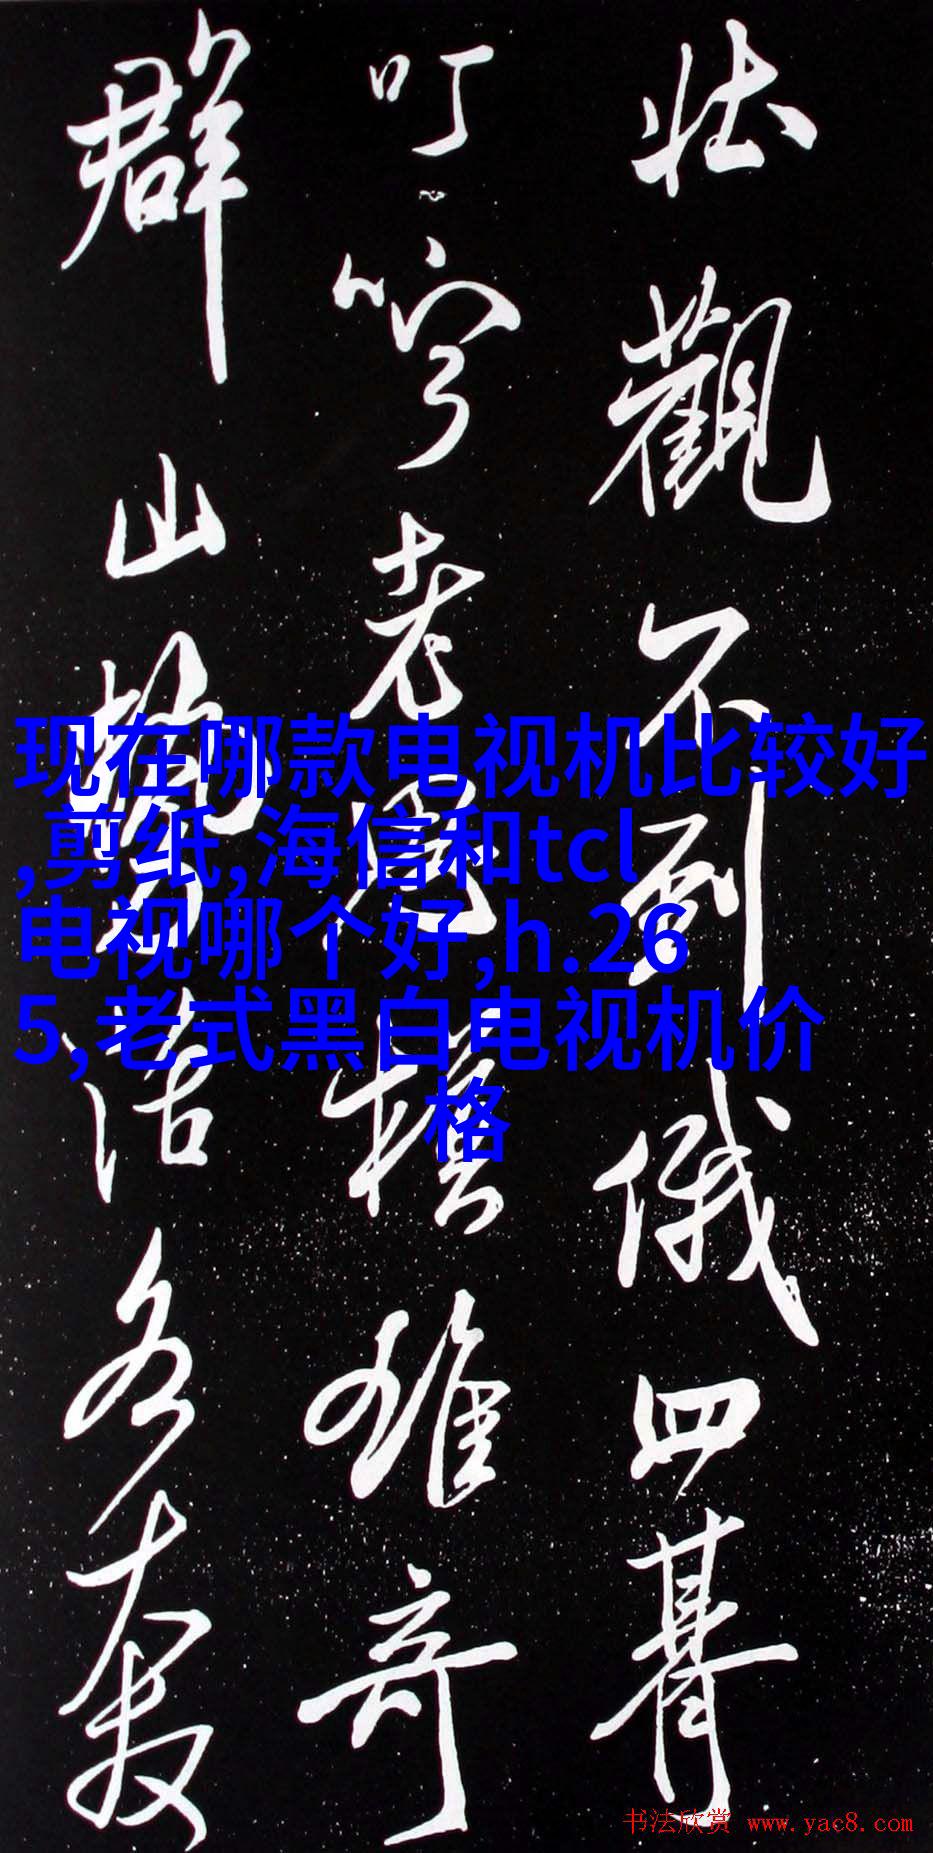 壮觀不到俄四朞
叮嚀老模雄奇
群山勢活各
现在哪款电视机比较好
,剪纸,海信和tcl
电视哪个好,h.26
5,老式黑白电视机价
格
书法欣赏 www.yac8.com